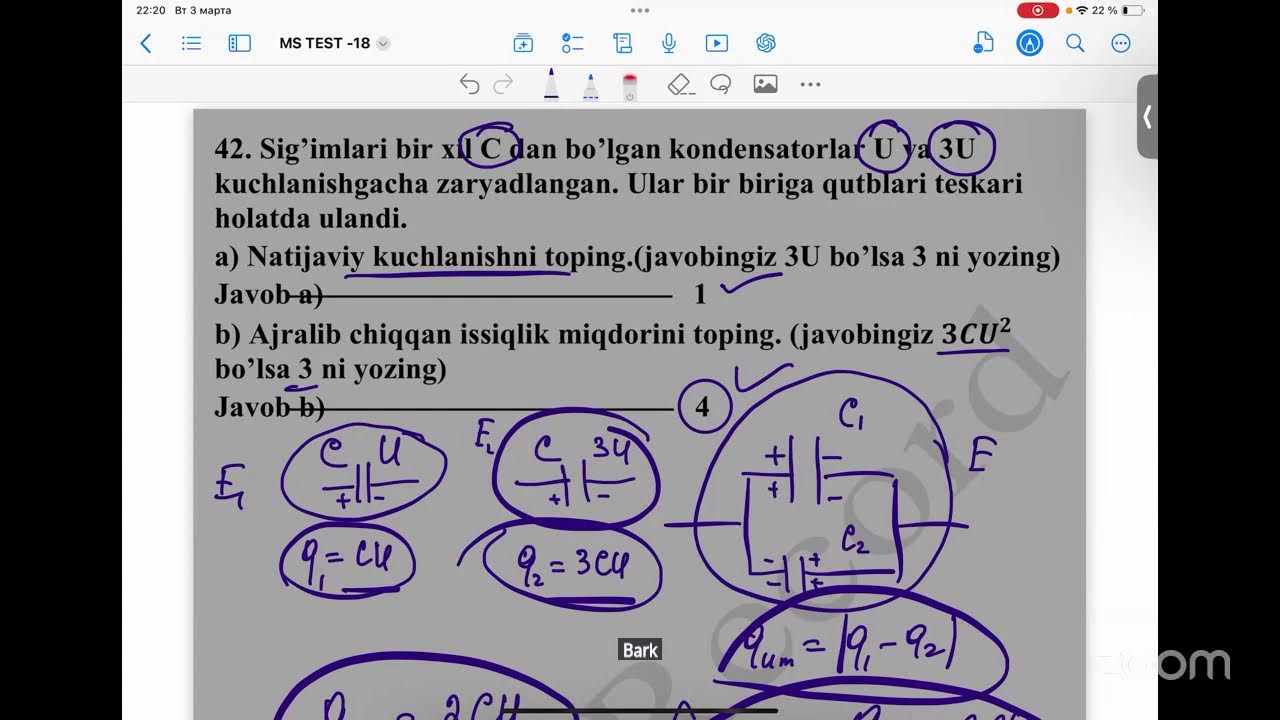 22:20 Вт 3 марта
22 %
MS TEST -18
42. Sig’imlari bir xil C dan bo’lgan kondensatorlar U va 3U
kuchlanishgacha zaryadlangan. Ular bir biriga qutblari teskari
holatda ulandi.
a) Natijaviy kuchlanishni toping.(javobingiz 3U bo’lsa 3 ni yozing)
Javob a) 1
b) Ajralib chiqqan issiqlik miqdorini toping. (javobingiz 3CU²
bo’lsa 3 ni yozing)
Javob b) 4
E₁ C U + -
E₂ C 3U + -
C₁ + - + - E
C₂ - + - +
q₁ = CU
q₂ = 3CU
q um = |q₁ - q₂|
Bark
ecord
zoom
= 2CU